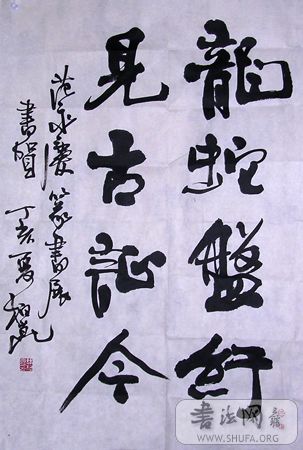 龍蛇盤紆
見古証今
范永慶篆書展
書賀 丁亥夏
书法网
WWW.SHUFA.ORG